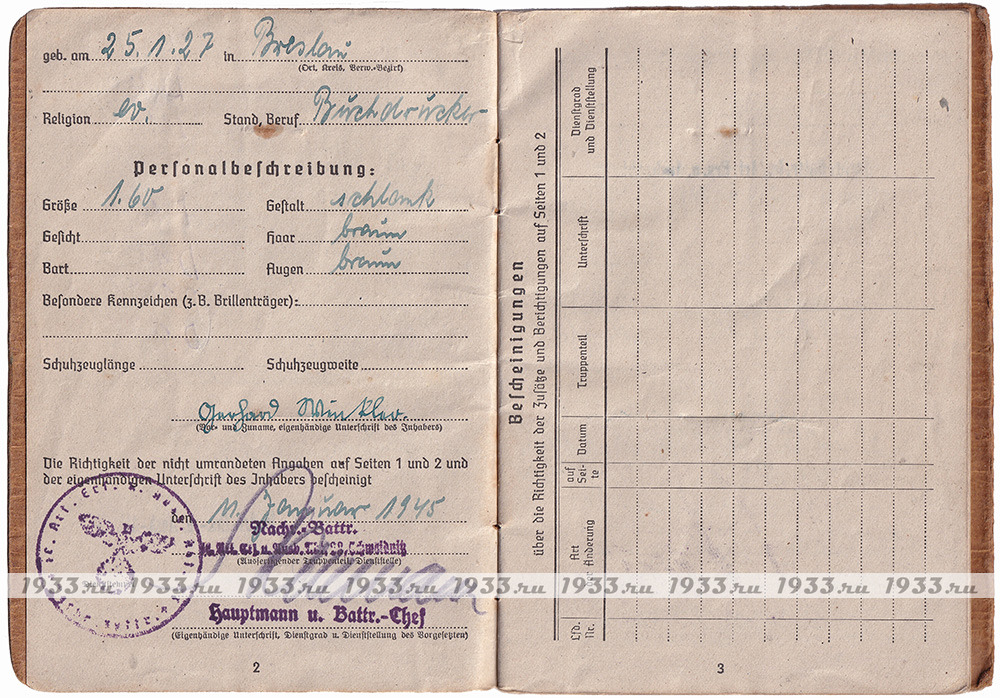 geb. am 25.1.27 in Breslau
(Ort, Kreis, Verw.-Bezirk)
Religion ev. Stand, Beruf Buchdrucker
Personalbeschreibung:
Größe 1.60 Gestalt schlank
Gesicht Haar braun
Bart Augen braun
Besondere Kennzeichen (z.B. Brillenträger):
Schuhzeuglänge Schuhzeugweite
Gerhard Winkler.
(Vor- und Zuname, eigenhändige Unterschrift des Inhabers)
Die Richtigkeit der nicht umrandeten Angaben auf Seiten 1 und 2 und
der eigenhändigen Unterschrift des Inhabers bescheinigt
den 11. Januar 1945
Nachr.-Battr.
Art. Ers. u. Ausb. 28, Schweidnitz
(Ausfertigender Truppenteil, Dienststelle)
Hauptmann u. Battr.-Chef
(Eigenhändige Unterschrift, Dienstgrad u. Dienststellung des Vorgesetzten)
2
Bescheinigungen
über die Richtigkeit der Zusätze und Berichtigungen auf Seiten 1 und 2
Lfd. Nr.
Art der Änderung
auf Sei-
te
Datum
Truppenteil
Unterschrift
Dienstgrad
und Dienststellung
3
1933.ru 1933.ru 1933.ru 1933.ru 1933.ru 1933.ru 1933.ru 1933.ru 1933.ru